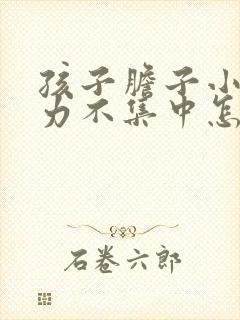 孩子胆子小
力不集中怎
石卷六郎